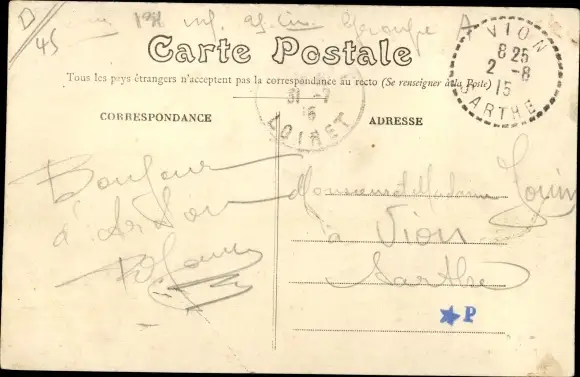 D
45
131 inf. Groupe A
Carte Postale
Tous les pays étrangers n'acceptent pas la correspondance au recto (Se renseigner à la Poste)
VION
8 25
2 -8
15
SARTHE
31 -7
15
LOIRET
CORRESPONDANCE
ADRESSE
Bonjour
Monsieur et Madame
à Vion
Sarthe
P